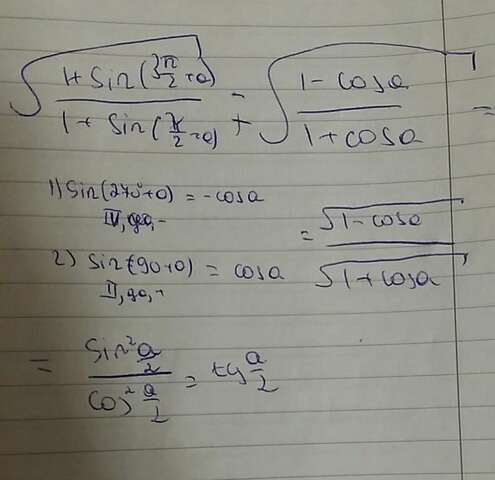 √(1+sin(3π/2+a) / 1+sin(π/2+a)) = √(1-cosa / 1+cosa) =
1) sin(270+a) = -cosa
IV, да, -
= √1-cosa / √1+cosa
2) sin(90+a) = cosa
II, да, +
= sin²a/2 / cos²a/2 = tg a/2